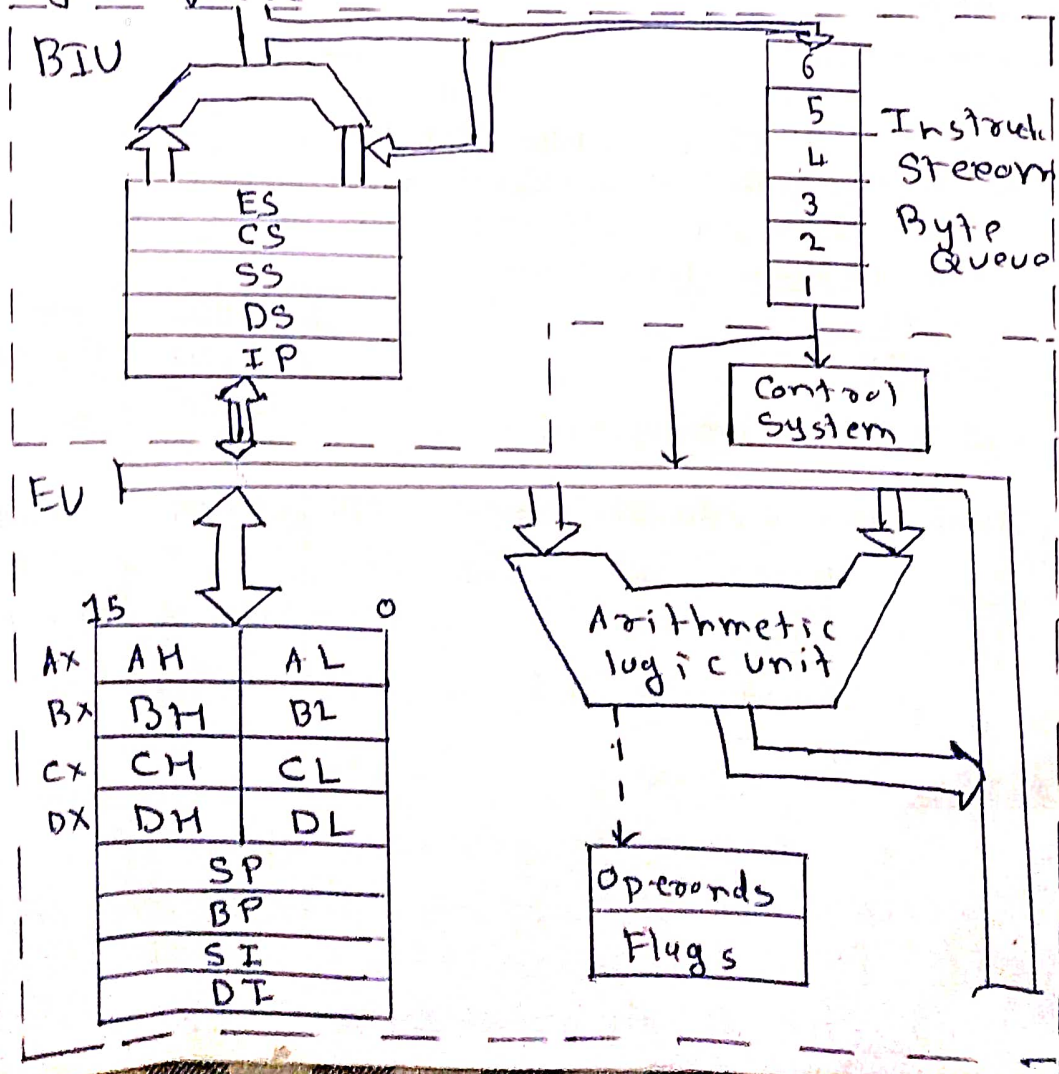 BIU
6
5
4
3
2
1
Instruct
Stream
Byte
Queue
ES
CS
SS
DS
IP
Control
System
EU
15 0
AX AH AL
BX BH BL
CX CH CL
DX DH DL
SP
BP
SI
DI
Arithmetic
logic unit
Operands
Flags